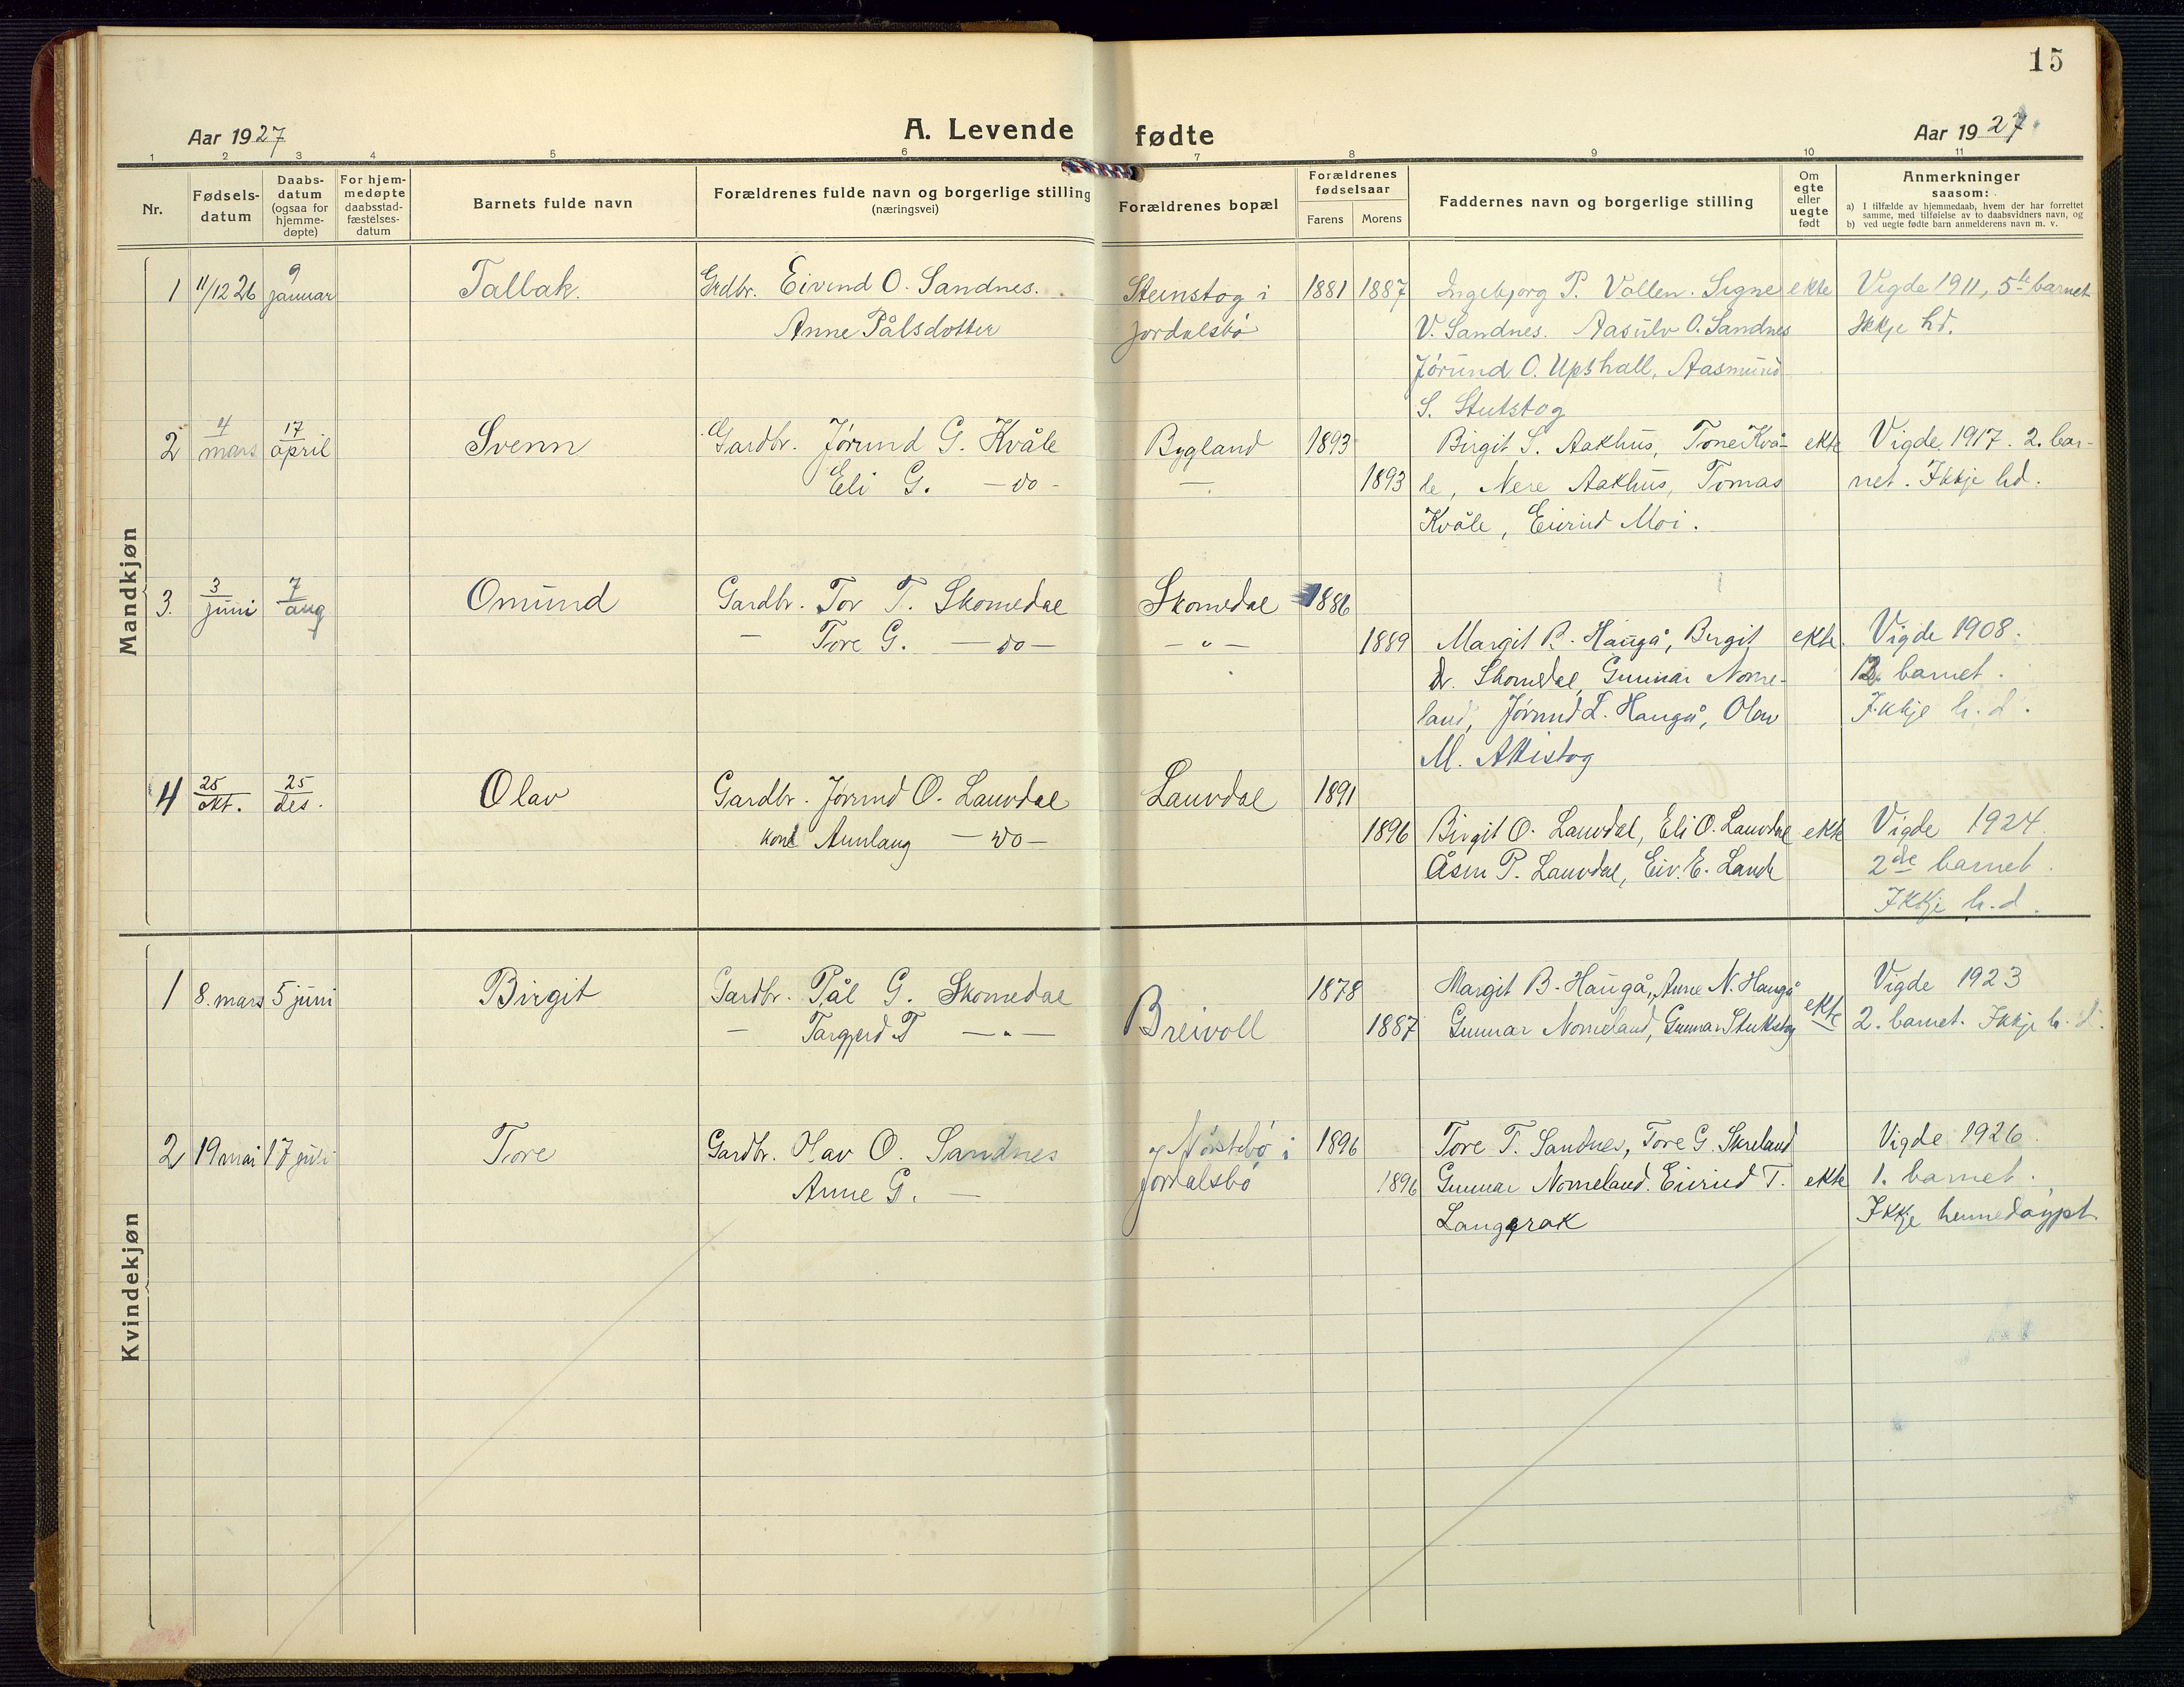 15
Aar 1927
A. Levende fødte
Aar 1927.
1 2 3 4 5 6 7 8 9 10 11
Nr.
Fødsels-
datum
Daabs-
datum
(ogsaa for
hjemme-
døpte)
For hjem-
medøpte
daabsstad-
fæstelses-
datum
Barnets fulde navn
Forældrenes fulde navn og borgerlige stilling
(næringsvei)
Forældrenes bopæl
Forældrenes
fødselsaar
Farens Morens
Faddernes navn og borgerlige stilling
Om
egte
eller
uegte
født
Anmerkninger
saasom:
a) I tilfælde av hjemmedaab, hvem der har forrettet
samme, med tilføielse av to daabsvidners navn, og
b) ved uegte fødte barn anmelderens navn m. v.
Mandkjøn
1 11/12 26 9 januar Tallak. Grdbr. Eivind O. Sandnes. Steinstog i 1881 1887 Ingebjorg P. Vollen. Signe ekte Vigde 1911, 5te barnet
Anne Pålsdotter Jordalsbø V. Sandnes. Aasulv O. Sandnes Ikkje hd.
Jørund O. Upshall, Aasmund
S. Stutstog
2 4 mars 17 april Svenn Gardbr. Jørund G. Kvåle Bygland 1893 Birgit S. Aakhus, Tone Kvå- ekte Vigde 1917. 2. bar-
Eli G. — do - — 1893 le, Nere Aakhus, Tomas net. Ikkje hd.
Kvåle, Eivind Moi.
3. 3 juni 7 aug Omund Gardbr. Tor T. Skomedal Skomedal 1886
— Tore G. — do — — " — 1889 Margit B. Haugå, Birgit ekte. Vigde 1908.
Skomedal, Gunnar Nome- 12 barnet.
land, Jørund T. Haugå, Olav Ikkje h. d.
M. Attistog
4 25 okt. 25 des. Olav Gardbr. Jørund O. Lauvdal Lauvdal 1891
kone Aunlaug — do — 1896 Birgit O. Lauvdal, Eli O. Lauvdal ekte Vigde 1924.
Åsm P. Lauvdal, Eiv. E. Lande 2de barnet.
Ikkje h. d.
Kvindekjøn
1 8. mars 5 juni Birgit Gardbr. Pål G. Skomedal Breivoll 1878 Margit B. Haugå, Anne N. Haugå ekte Vigde 1923
— Targjerd T — " — 1887 Gunnar Nomeland, Gunnar Stutstog 2. barnet. Ikkje h. d.
2 19 mai 17 juli Tore Gardbr. Olav O. Sandnes Nørstebø i 1896 Tore T. Sandnes, Tore G. Skreland Vigde 1926.
Anne G. — Jordalsbø 1896 Gunnar Nomeland. Eivind T. ekte 1. barnet.
Langerak Ikkje heimedøypt